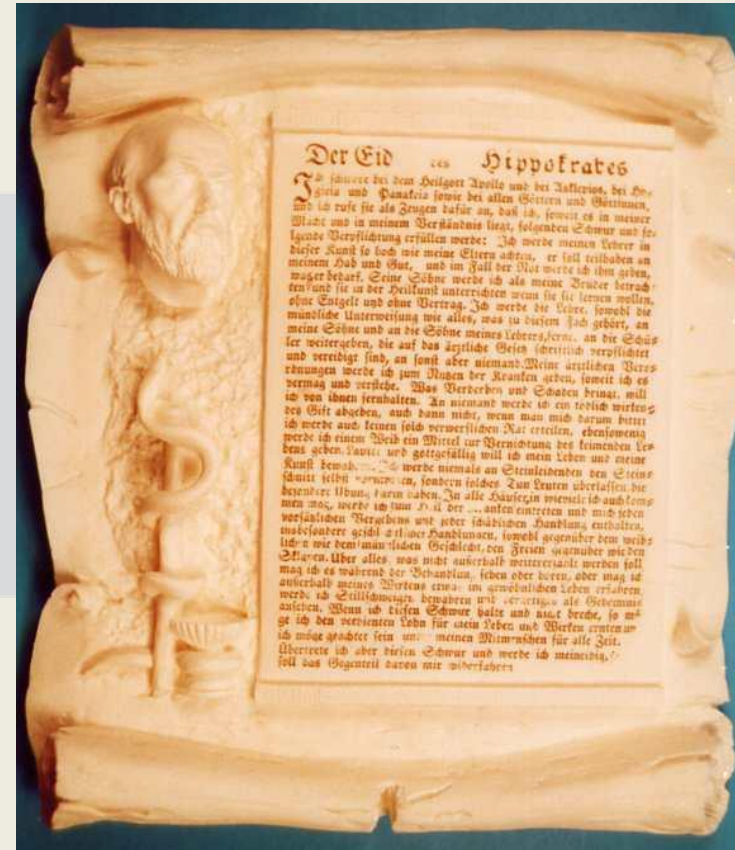 Der Eid des Hippokrates
Ich schwöre bei dem Heilgott Apollo und bei Asklepios, bei Hy=
gieia und Panakeia sowie bei allen Göttern und Göttinnen,
und ich rufe sie als Zeugen dafür an, daß ich, soweit es in meiner
Macht und in meinem Verständnis liegt, folgenden Schwur und fo=
lgende Verpflichtung erfüllen werde: Ich werde meinen Lehrer in
dieser Kunst so hoch wie meine Eltern achten, er soll teilhaben an
meinem Hab und Gut, und im Fall der Not werde ich ihm geben,
was er bedarf. Seine Söhne werde ich als meine Brüder betrach=
ten und sie in der Heilkunst unterrichten wenn sie sie lernen wollen,
ohne Entgelt und ohne Vertrag. Ich werde die Lehre, sowohl die
mündliche Unterweisung wie alles, was zu diesem Fach gehört, an
meine Söhne und an die Söhne meines Lehrers, ferner an die Schü=
ler weitergeben, die auf das ärztliche Gesetz schriftlich verpflichtet
und vereidigt sind, an sonst aber niemand. Meine ärztlichen Vero=
rdnungen werde ich zum Nutzen der Kranken geben, soweit ich es
vermag und verstehe. Was Verderben und Schaden bringt, will
ich von ihnen fernhalten. An niemand werde ich ein tödlich wirken=
des Gift abgeben, auch dann nicht, wenn man mich darum bittet
ich werde auch keinen solch verwerflichen Rat erteilen, ebensowenig
werde ich einem Weib ein Mittel zur Vernichtung des keimenden Le=
bens geben. Lauter und gottgefällig will ich mein Leben und meine
Kunst Ich werde niemals an Steinleidenden den Stein=
schnitt selbst sondern solches Tun Leuten überlassen die
besondere Übung darin haben. In alle Häuser, in wieviele ich auch kom=
men mag, werde ich zum der eintreten und mich jeden
vorsätzlichen Vergehens und jeder schädlichen Handlung enthalten,
insbesondere Handlungen, sowohl gegenüber dem weib=
lichen wie dem männlichen Geschlecht, den Freien gegenüber wie den
Sklaven. Über alles, was nicht außerhalb weitererzählt werden soll
mag ich es während der Behandlung sehen oder hören, oder mag ich
außerhalb meines Wirkens etwas im gewöhnlichen Leben erfahren,
werde ich Stillschweigen bewahren und derartiges als Geheimnis
ansehen. Wenn ich diesen Schwur halte und nicht breche, so mö
ge ich den verdienten Lohn für mein Leben und Werken ernten und
ich möge geachtet sein meinen Mitmenschen für alle Zeit.
Übertrete ich aber diesen Schwur und werde ich meineidig,
soll das Gegenteil davon mir widerfahren